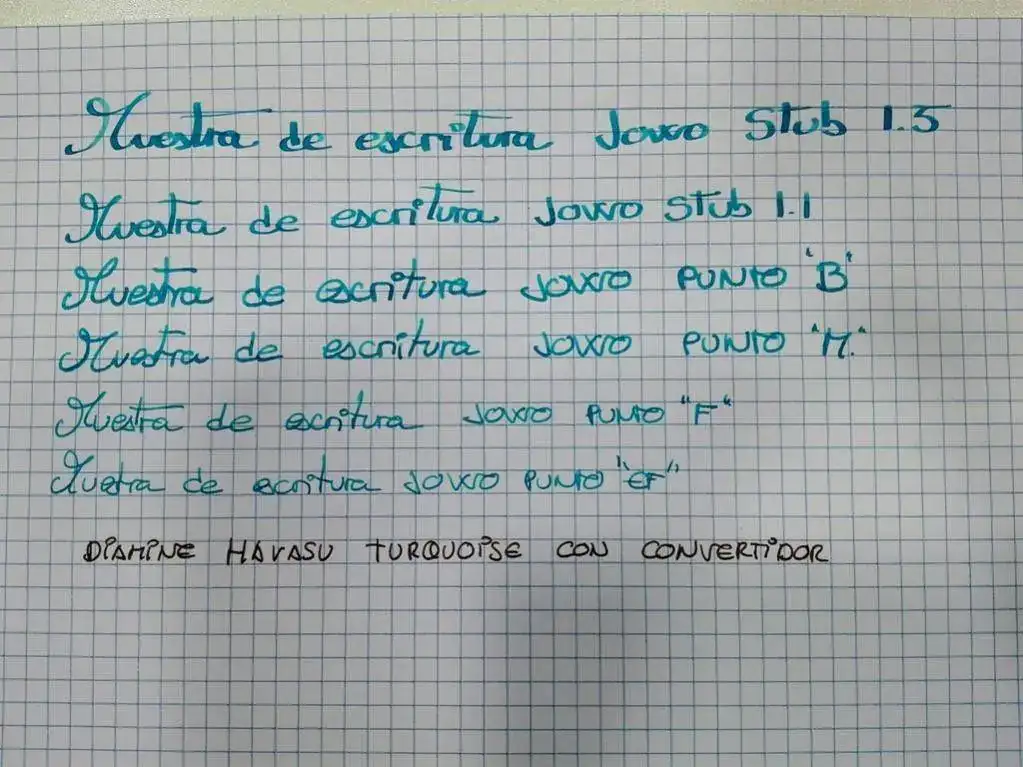 Muestra de escritura Jowo Stub 1.5
Muestra de escritura Jowo Stub 1.1
Muestra de escritura Jowo PUNTO "B"
Muestra de escritura Jowo PUNTO "M"
Muestra de escritura Jowo PUNTO "F"
Muetra de escritura Jowo PUNTO "EF"
DIAMINE HAVASU TURQUOISE CON CONVERTIDOR